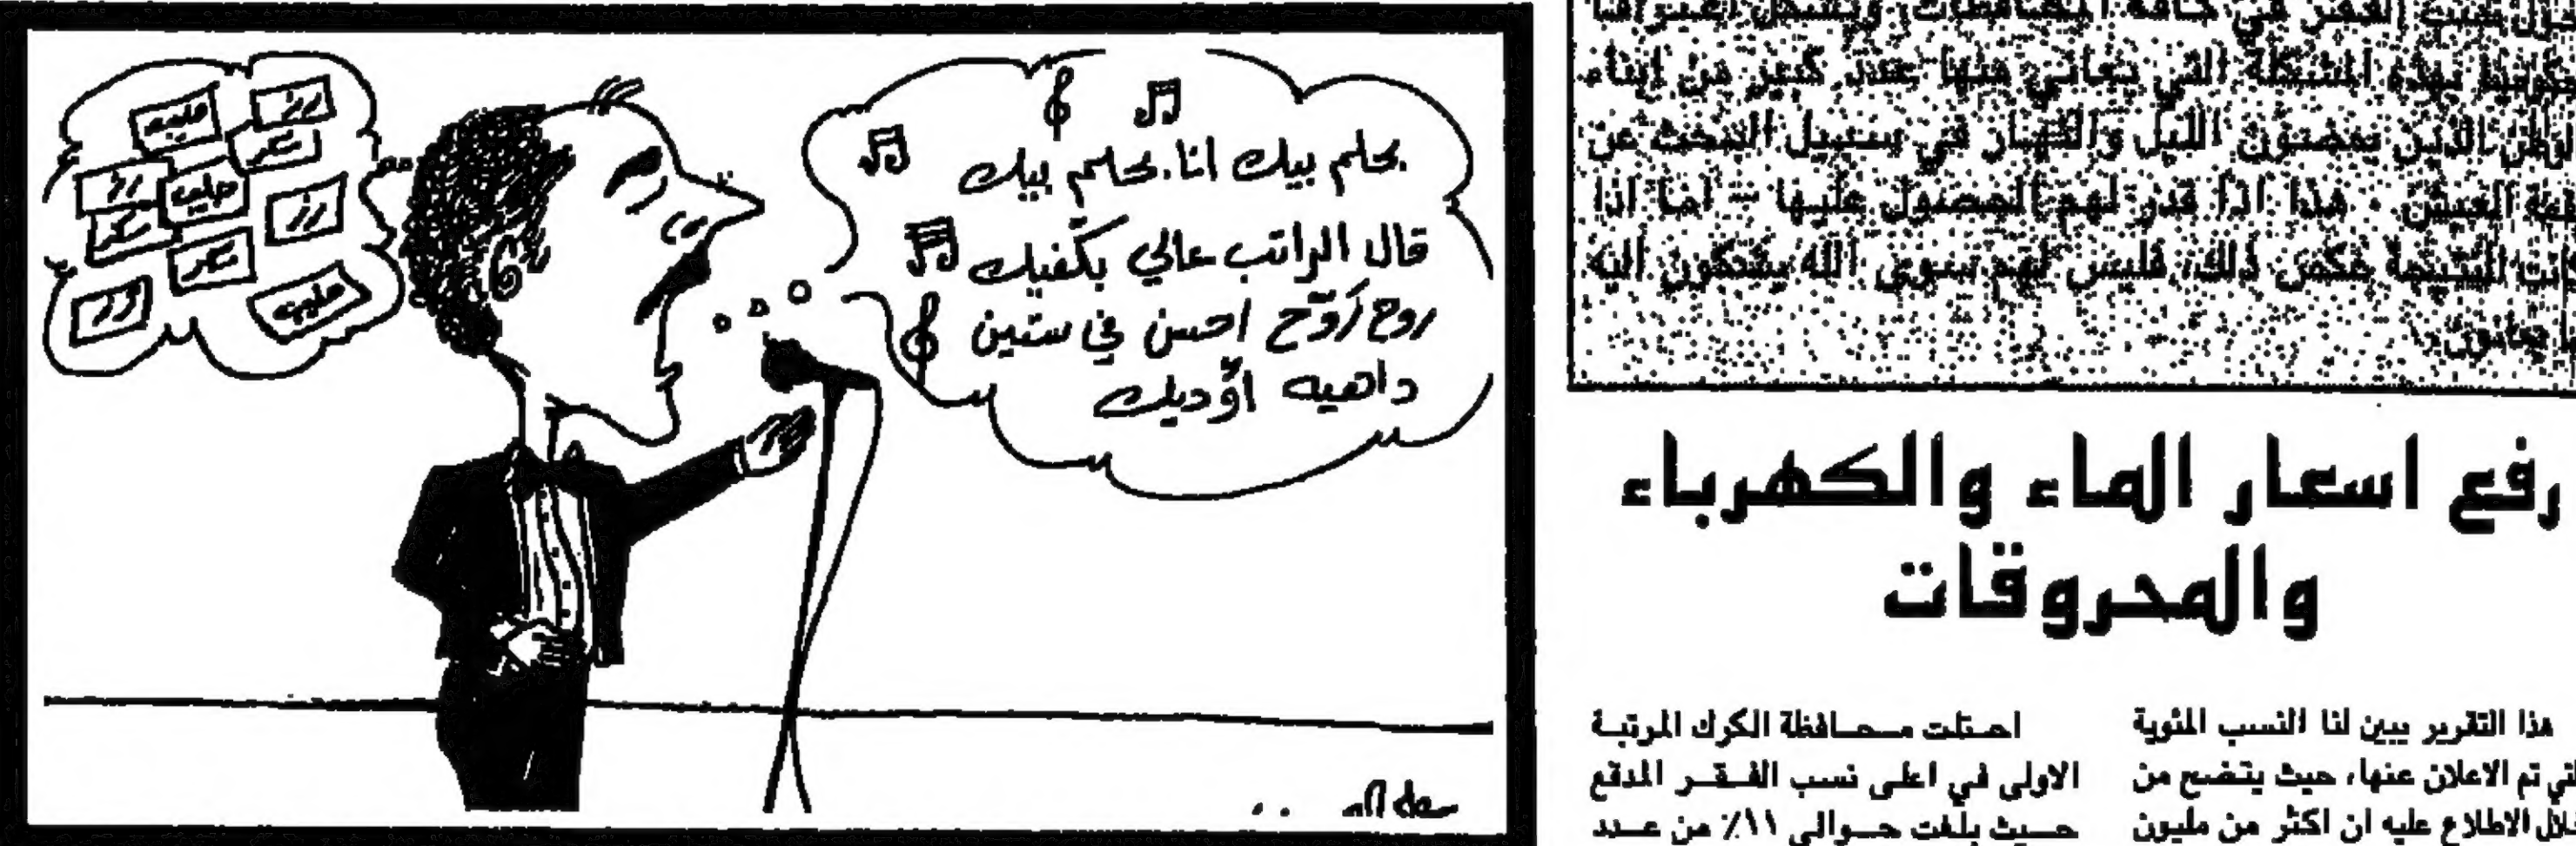 بحلم بيك انا.بحلم بيك
قال الراتب عالي بكفيك
روح رَوّح احسن في ستين
داهيه اوّديك
حليب
رز
سكر
رز
حليب
رز
سكر
سكر
رز
حليب
بهذه المشكلة التي يعاني منها عدد كبير من ابناء
الوطن الذين يمضون الليل والنهار في سبيل البحث عن
لقمة العيش . هذا اذا قدر لهم الحصول عليها - اما اذا
كانت النتيجة عكس ذلك، فليس لهم سوى الله يشكون اليه
ما يعانون.
رفع اسعار الماء والكهرباء
والمحروقات
هذا التقرير يبين لنا النسب المئوية
التي تم الاعلان عنها، حيث يتضح من
خلال الاطلاع عليه ان اكثر من مليون
احتلت محافظة الكرك المرتبة
الاولى في اعلى نسب الفقر المدقع
حيث بلغت حوالي ١١٪ من عدد